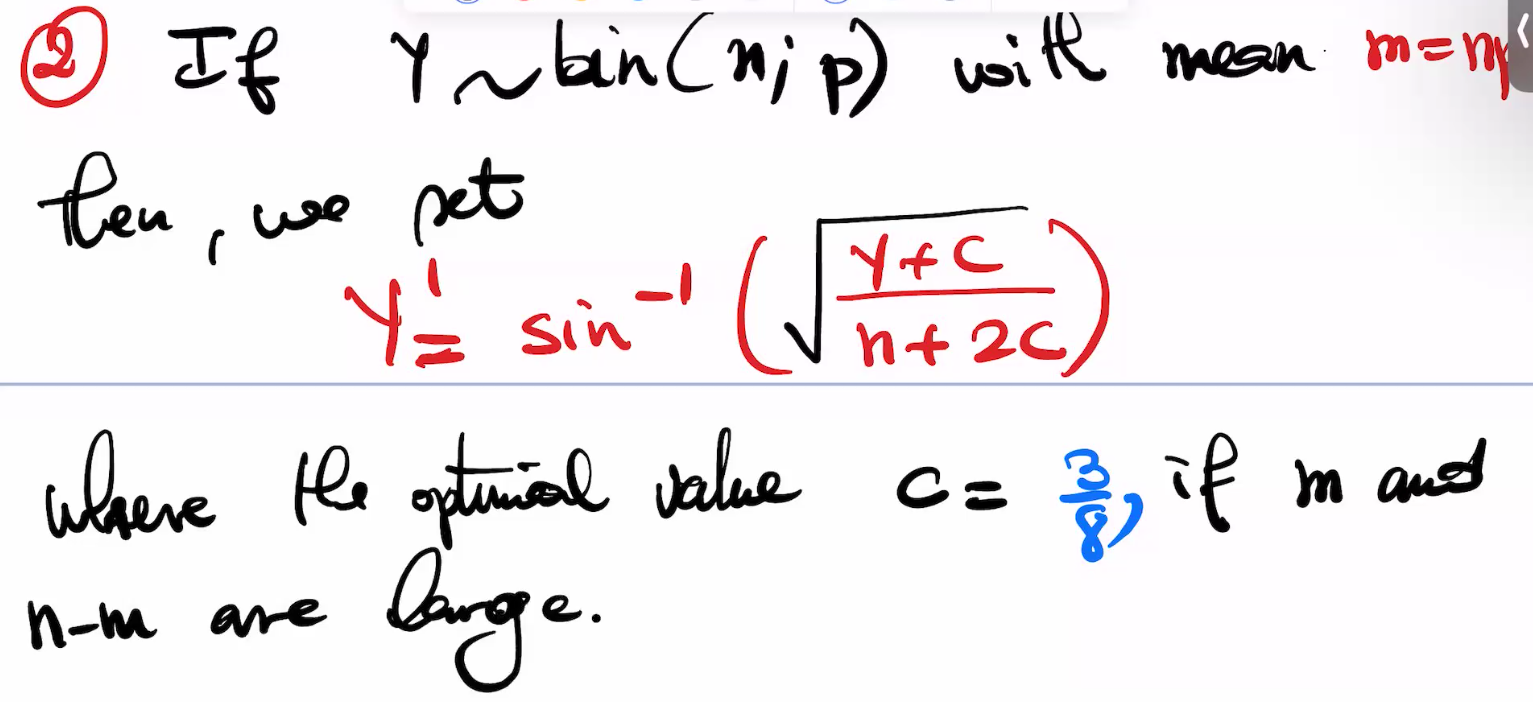 ② If Y ~ bin(n; p) with mean m = np
then, we set
Y' = sin⁻¹ (√((Y+C)/(n+2C)))
where the optimal value C = 3/8, if m and
n-m are large.